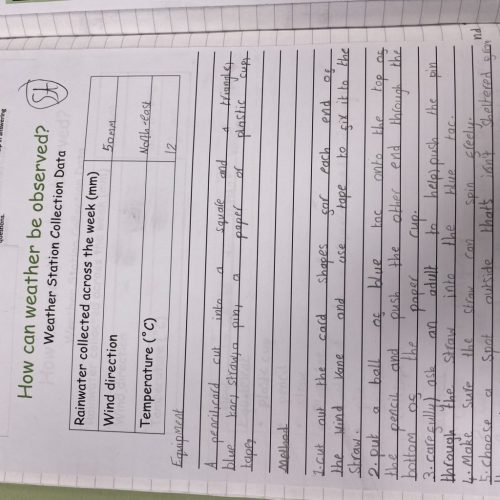 questions.
How can weather be observed?
Weather Station Collection Data
Rainwater collected across the week (mm) 50mm
Wind direction North-east
Temperature (°C) 12
Equipment
A pencil, card cut into a square and a triangle,
blue tac, straw, a pin, a paper or plastic cup,
tape,
Method
1. cut out the card shapes for each end of
the wind vane and use tape to fix it to the
straw.
2. put a ball of blue tac onto the top of
the pencil and push the other end through the
bottom of the paper cup.
3. carefully) ask an adult to help) push the pin
through the straw into the blue tac.
4. Make sure the straw can spin freely.
5. choose a spot outside thats isn't sheltered from